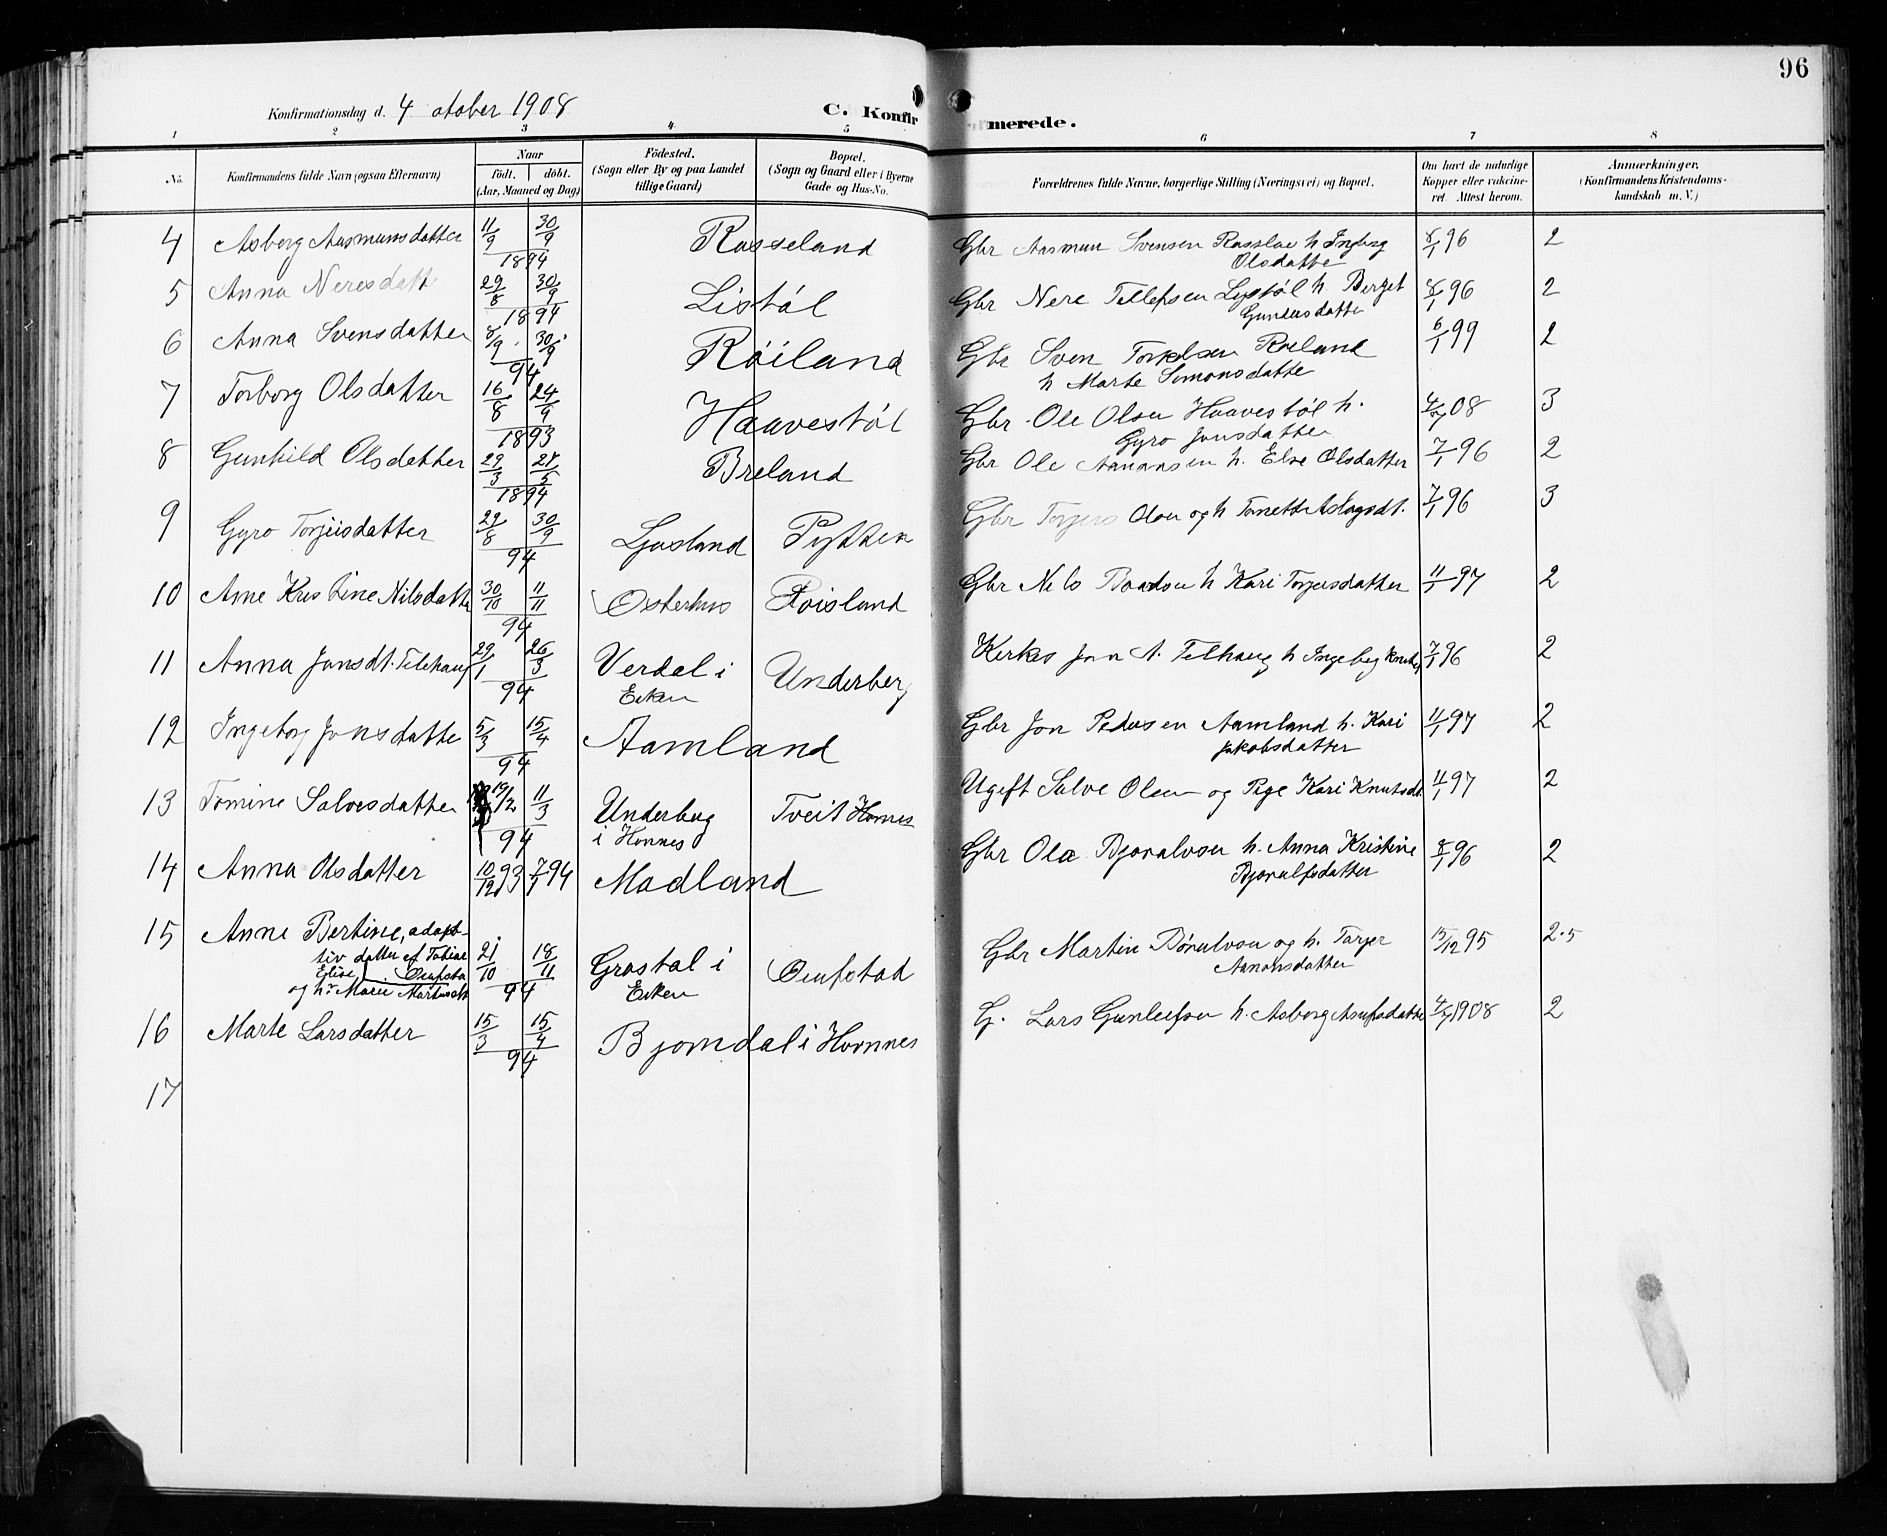 96
Konfirmationsdag d. 4 otober 1908
C. Konfirmerede.
1 2 3 4 5 6 7 8
No. Konfirmandens fulde Navn (ogsaa Efternavn) Naar födt. döbt. (Aar, Maaned og Dag) Födested. (Sogn eller By og paa Landet tillige Gaard) Bopæl. (Sogn og Gaard eller i Byerne Gade og Hus-No. Forældrenes fulde Navne, borgerlige Stilling (Næringsvei) og Bopæl. Om havt de naturlige Kopper eller vakcineret Attest herom. Anmærkninger. (Konfirmandens Kristendomskundskab m. V.)
4 Asberg Aasmunsdatter 11/9 30/9 1894 Rosseland Gbr Aasmun Svensen h Ingberg Olsdatte 8/1 96 2
5 Anna Neresdatt 29/8 30/9 1894 Listöl Gbr Nere Tellefsen Lystöl h. Berget Gundersdatter 8/1 96 2
6 Anna Svensdatter 8/9 30/9 94 Röiland Gbr Sven Torkelsen Roeland h Marte Simonsdatte 6/1 99 2
7 Torborg Olsdatter 16/8 24/9 1893 Haavestöl Gbr. Ole Olsen Haavestöl h. Gyro Jonsdatter 4/7 08 3
8 Gunhild Olsdatter 29/3 27/5 1894 Breland Gbr Ole Aanansen h. Elve Olsdatter 7/1 96 2
9 Gyro Torjusdatter 29/8 30/9 94 Ljosland Pytten Gbr Torjus Olsen og h Tonette Aslagsdt. 7/1 96 3
10 Anne Kristine Nilsdatte 30/10 11/11 94 Osterhus Röisland Gbr Nils Baardsen h Kari Torjersdatter 11/1 97 2
11 Anna Jonsdt. Telehaug 29/1 26/3 94 Verdal i Eiken Underberg Kirkes Jon A. Telhaug h Ingeberg 7/1 96 2
12 Ingeborg Jonsdatte 5/3 15/4 94 Aamland Gbr Jon Pedersen Aamland h. Kari Jakobsdatter 11/1 97 2
13 Tomine Salvesdatter 19/2 11/3 94 Underberg i Hornnes Tveit Hornes Ugift Salve Olsen og Pige Kari Knutsdt. 11/1 97 2
14 Anna Olsdatter 10/12 93 7/1 94 Modland Gbr Ola Bjoralvsen h. Anna Kristine Bjorulfsdatter 8/1 96 2
15 Anne Bertine, adoptiv datter af Tobias og hr Maren Martinsdt 21/10 18/11 94 Grostöl i Eiken Omfstad Gbr Martin Börulvsen og h. Torjer Aanonsdatter 15/12 95 2.5
16 Marte Larsdatter 15/3 15/4 94 Bjorndal i Hornnes G. Lars Gunleifsen h. Asborg Asulfsdatte 4/7 1908 2
17